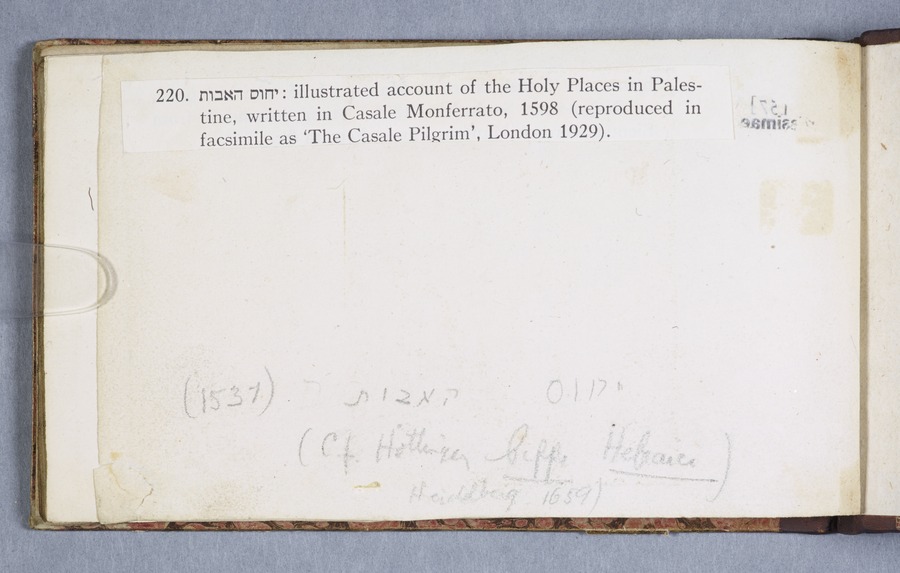 220. יחוס האבות: illustrated account of the Holy Places in Pales-
tine, written in Casale Monferrato, 1598 (reproduced in
facsimile as 'The Casale Pilgrim', London 1929).
יחוס האבות (1537)
(Cf. Hottinger Cippi Hebraici)
Heidelberg 1659)